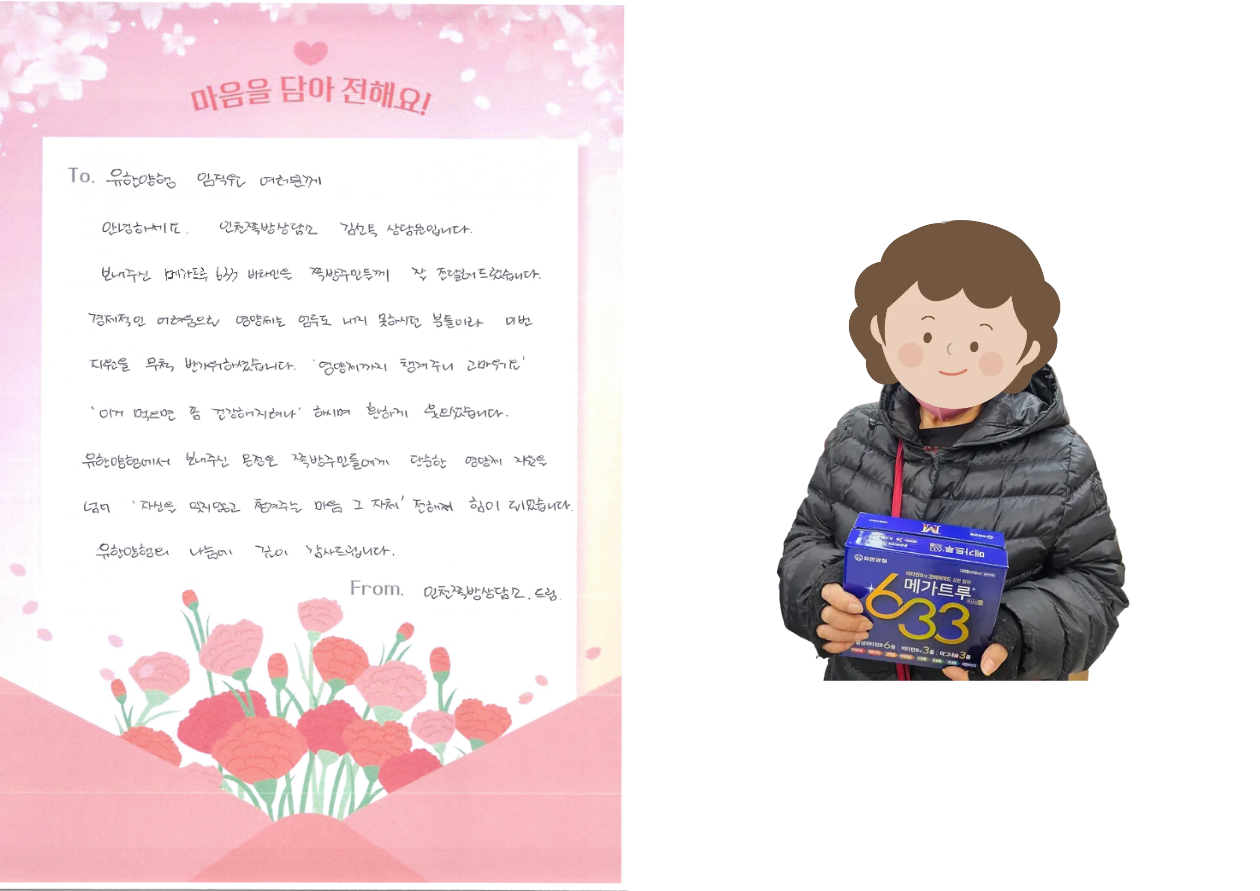 마음을 담아 전해요!
To. 유한양행 임직원 여러분께
안녕하세요. 인천쪽방상담소 상담원입니다.
보내주신 메가트루 633 비타민은 쪽방주민분께 잘 전달해드렸습니다.
경제적인 어려움으로 영양제는 엄두도 내지 못하시던 분들이라 이번
지원을 무척 반가워하셨습니다. '영양제까지 챙겨주니 고마워요'
'이거 먹으면 좀 건강해지려나' 하시며 환하게 웃으셨습니다.
유한양행에서 보내주신 물건은 쪽방주민들에게 단순한 영양제 지원을
넘어 '자신을 잊지않고 챙겨주는 마음 그 자체' 전해져 힘이 되었습니다.
유한양행의 나눔에 깊이 감사드립니다.
From. 인천쪽방상담소. 드림.
M
메가트루 633
메가트루
633
6종
3종
3종